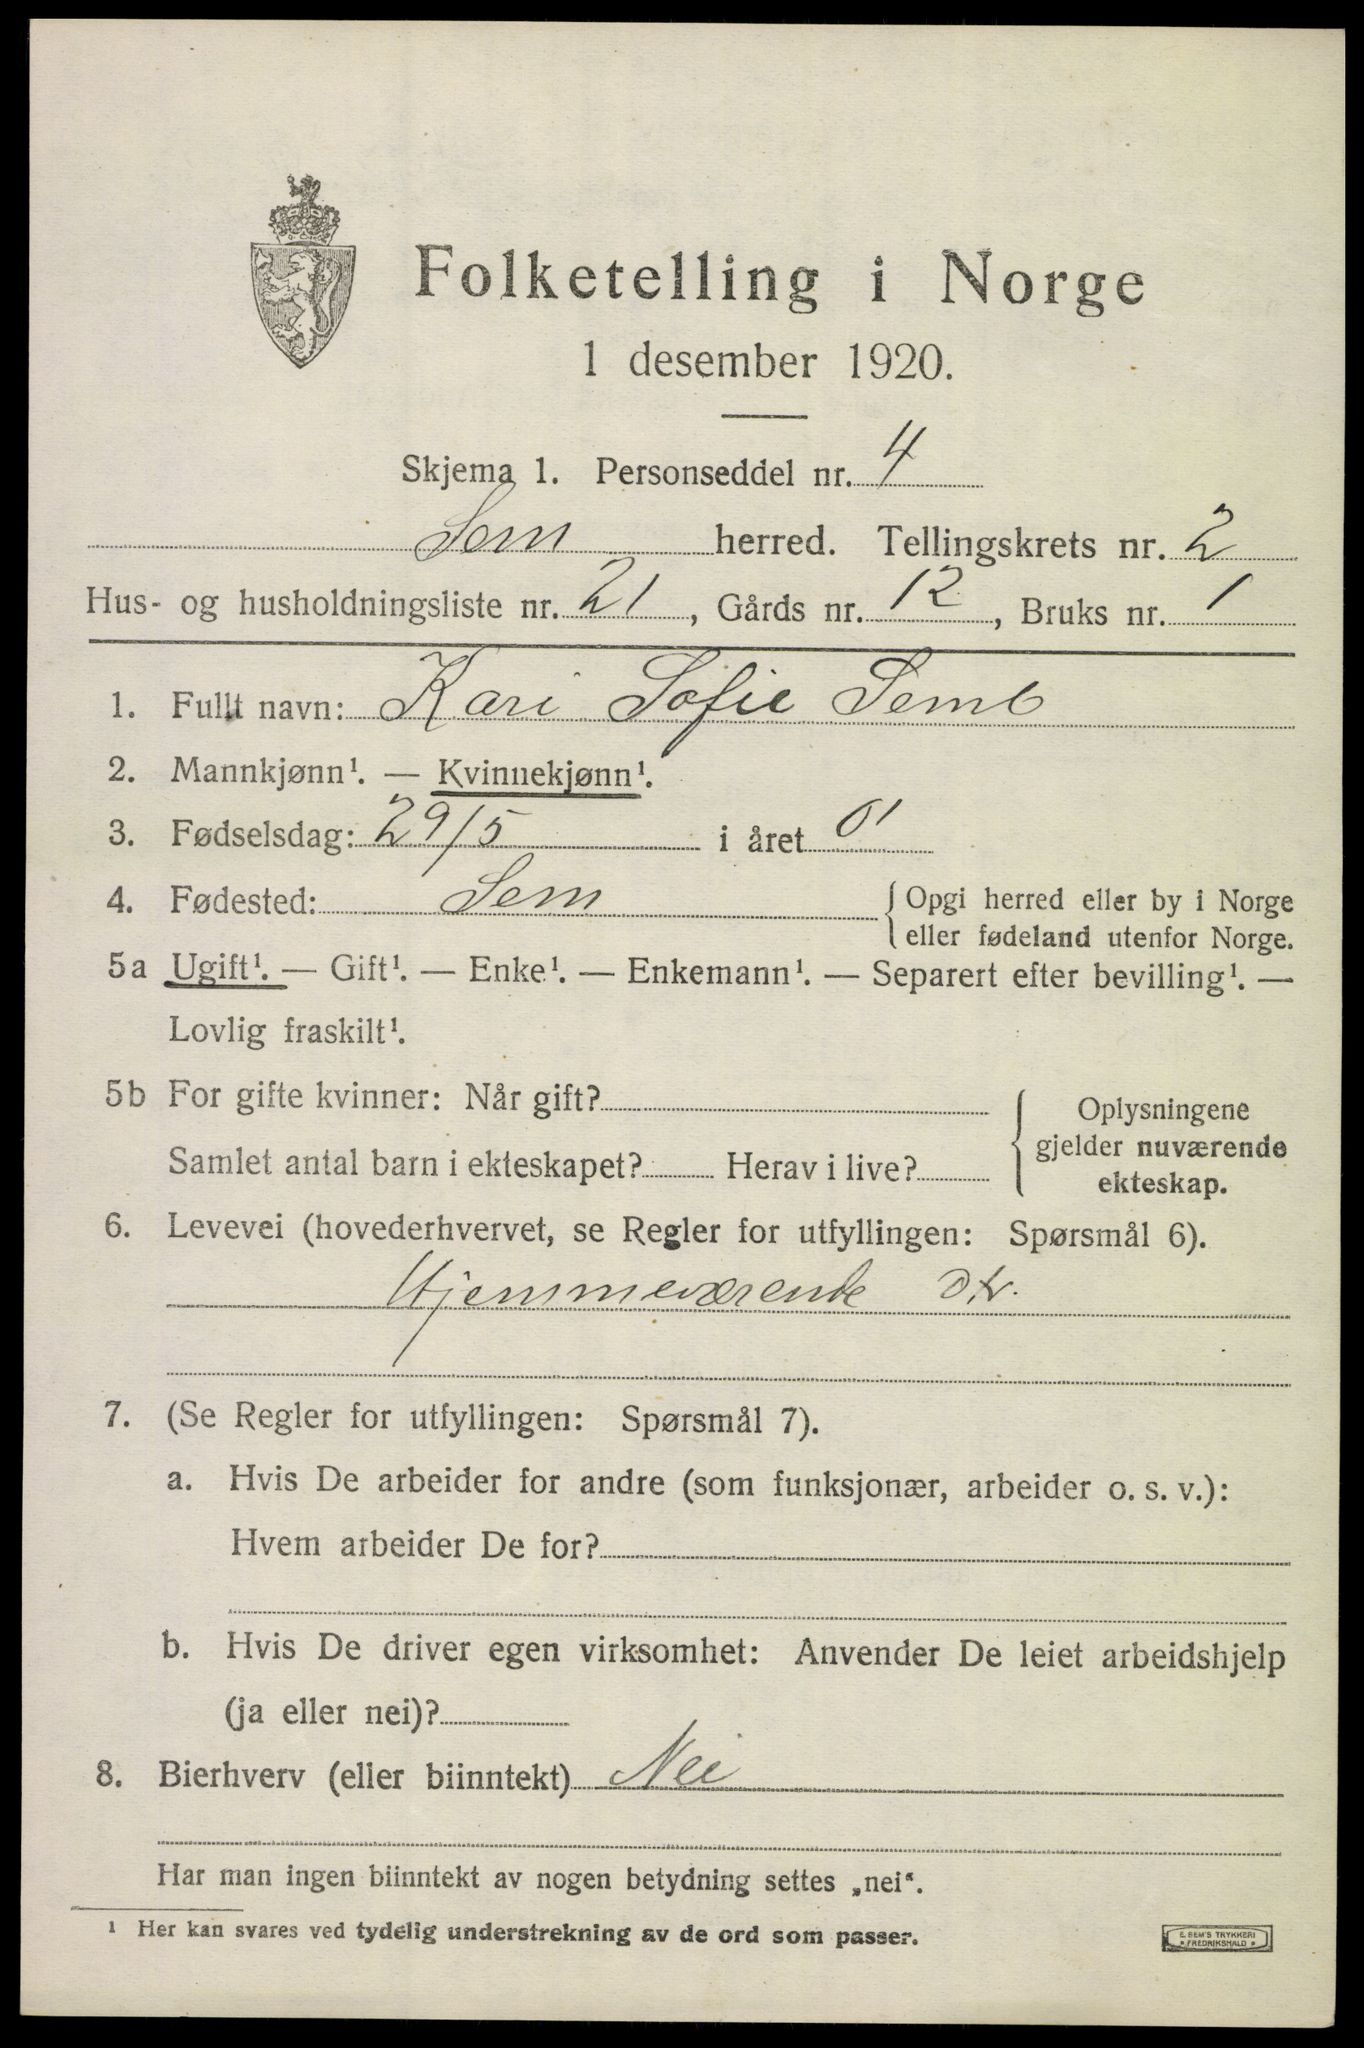 Folketelling i Norge
1 desember 1920.
Skjema 1. Personseddel nr. 4
Sem herred. Tellingskrets nr. 2
Hus- og husholdningsliste nr. 21, Gårds nr. 12, Bruks nr. 1
1. Fullt navn: Kari Sofie Semb
2. Mannkjønn¹. — Kvinnekjønn¹.
3. Fødselsdag: 29/5 i året 01
4. Fødested: Sem { Opgi herred eller by i Norge
eller fødeland utenfor Norge.
5a Ugift¹. — Gift¹. — Enke¹. — Enkemann¹. — Separert efter bevilling¹. —
Lovlig fraskilt¹.
5b For gifte kvinner: Når gift?
Samlet antal barn i ekteskapet? Herav i live?
{ Oplysningene
gjelder nuværende
ekteskap.
6. Levevei (hovederhvervet, se Regler for utfyllingen: Spørsmål 6).
Hjemmeværende dtr.
7. (Se Regler for utfyllingen: Spørsmål 7).
a. Hvis De arbeider for andre (som funksjonær, arbeider o. s. v.):
Hvem arbeider De for?
b. Hvis De driver egen virksomhet: Anvender De leiet arbeidshjelp
(ja eller nei)?
8. Bierhverv (eller biinntekt) Nei
Har man ingen biinntekt av nogen betydning settes „nei“.
¹ Her kan svares ved tydelig understrekning av de ord som passer.
E. SEM'S TRYKKERI
FREDRIKSHALD